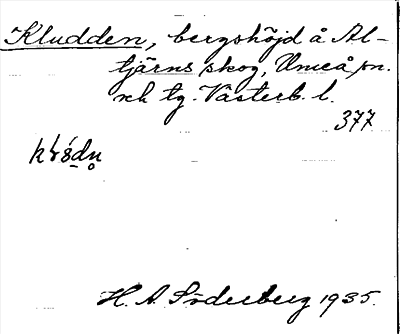 Kludden, bergshöjd å Al-
tjärns skog, Umeå sn.
och tg. Västerb. l.
377
H. A. Söderberg 1935.